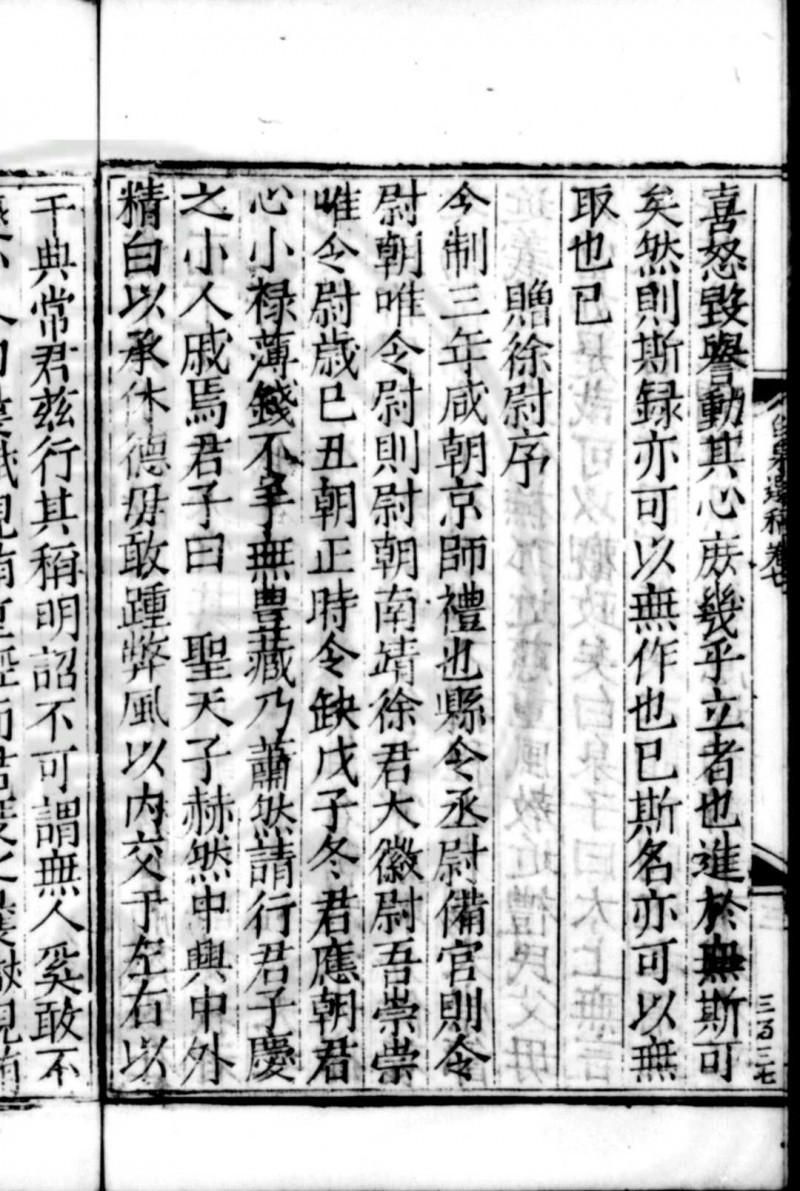 喜怒毀譽動其心庻幾乎立者也進於無斯可
矣然則斯録亦可以無作也已斯名亦可以無
取也已
贈徐尉序
今制三年咸朝京師禮也縣令丞尉備官則令
尉朝唯令尉則尉朝南靖徐君大徽尉吾崇崇
唯令尉歳巳丑朝正時令缺戊子冬君應朝君
心小禄薄錢不手無豊藏乃蕭然請行君子慶
之小人戚焉君子曰　聖天子赫然中興中外
精白以承休德毋敢踵弊風以内交于左右以
干典常君兹行其稱明詔不可謂無人奚敢不
遺稿卷七
三百三七